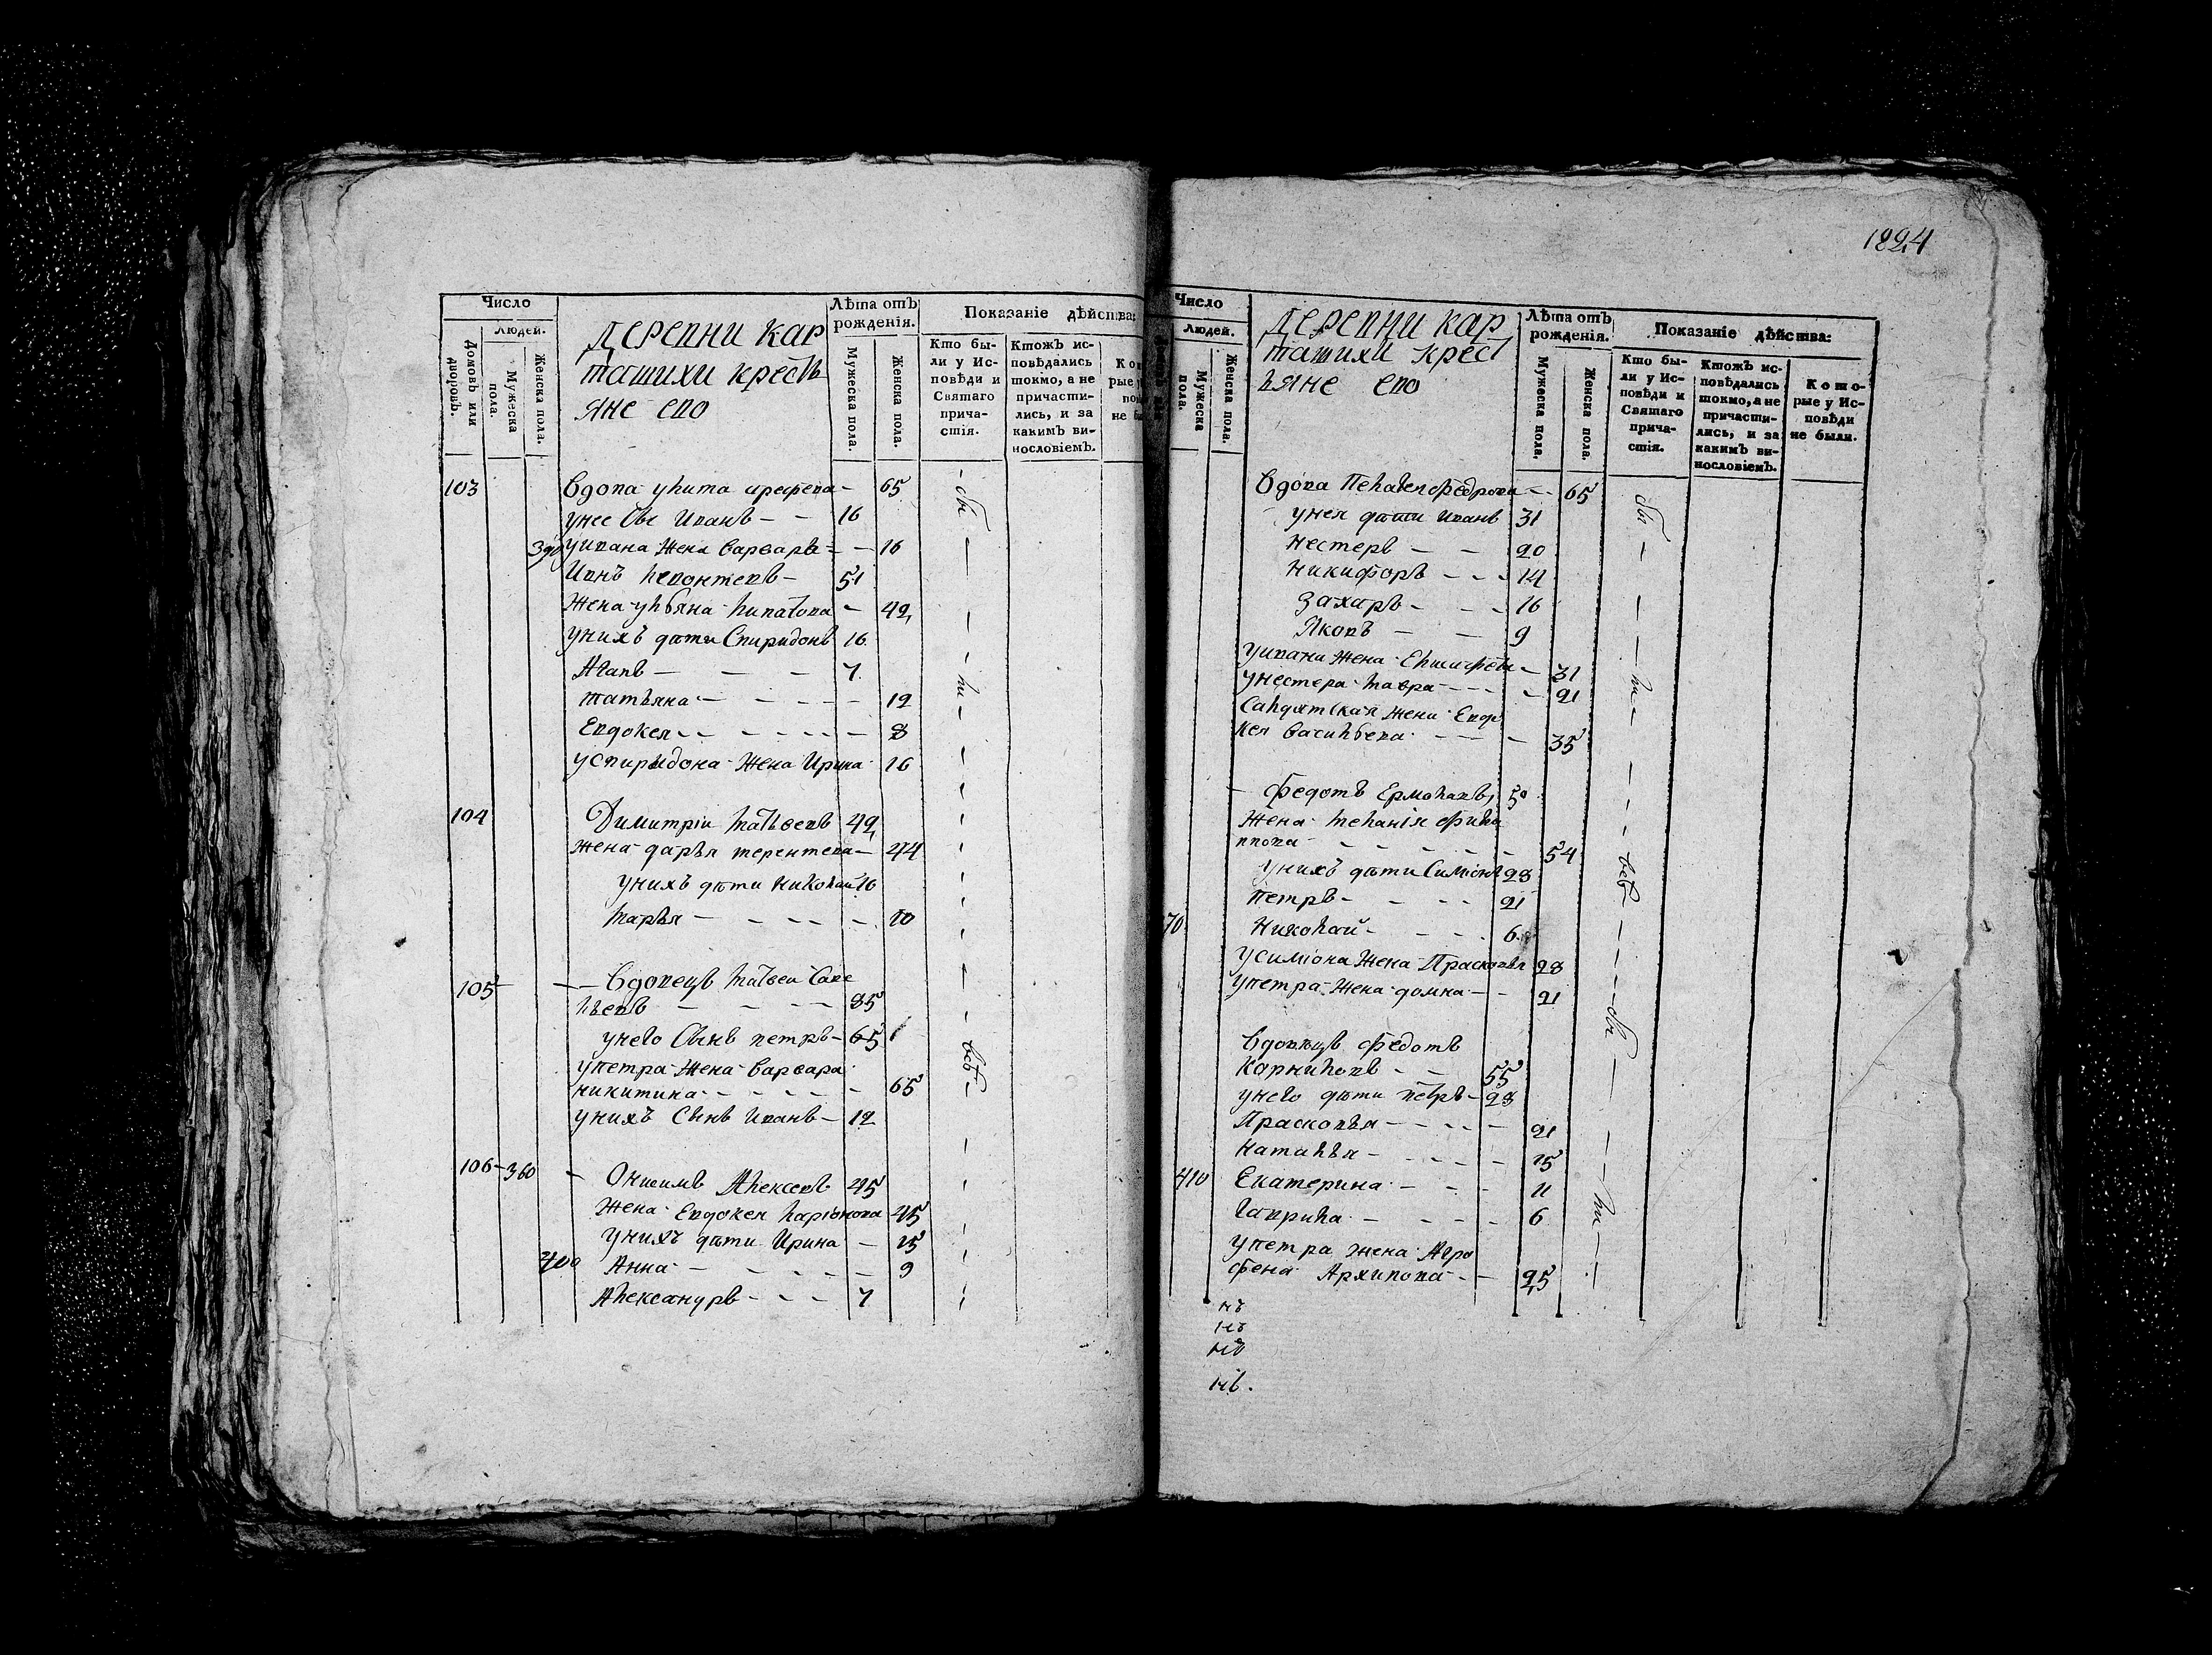 1824
Число
Людей.
Домовъ или дворовъ.
Мужеска пола.
Женска пола.
деревни Кар
ташихи кресть
яне ево
Лѣта отъ рожденія.
Мужеска пола.
Женска пола.
Показаніе дѣйства:
Кто бы-
ли у Ис-
повѣди и
Святаго
прича-
стія.
Ктожъ ис-
повѣдались
токмо, а не
причасти-
лись, и за
какимъ ви-
нословіемъ.
103 вдова улита 65
унее сы Иванъ 16
390 уивана жена варвара 16
Ивнъ леонтевъ 51
жена ульяна 42
унихъ дѣти Спиридонъ 16
Агапъ 7
татьяна 12
Евдокея 8
успиридона жена Ирина 16
104 Димитріи матвеевъ 42
жена дарья терентева 44
унихъ дѣти николай 16
марья 10
105 вдовецъ матвеи Саве
льевъ 85
унего сынъ петръ 65
упетра жена варвара
никитина 65
унихъ сынъ иванъ 12
106 360 Онисимъ Алексеевъ 45
жена Евдокея ларіонова 45
унихъ дѣти Ирина 15
400 Анна 9
Александръ 7
бы
ли
всѣ
Число
Людей.
Мужеска пола.
Женска пола.
деревни кар
ташихи крест
ьяне ево
Лѣта отъ рожденія.
Мужеска пола.
Женска пола.
Показаніе дѣйства:
Кто бы-
ли у Ис-
повѣди и
Святаго
прича-
стія.
Ктожъ ис-
повѣдались
токмо, а не
причасти-
лись, и за
какимъ ви-
нословіемъ.
Кото-
рые у Ис-
повѣди
не были.
вдова Пелагея федрова 65
унея дѣти иванъ 31
нестеръ 20
никифоръ 14
захаръ 16
Яковъ 9
уивана жена 31
унестера мавра 21
Салдатская жена Евдо
кея васильева 35
федотъ Ермолаевъ 50
жена меланія фили
ппова 54
унихъ дѣти Симіонъ 28
петръ 21
70 николай 6
усиміона жена Прасковья 28
упетра жена домна 21
вдовецъ федотъ
Карниловъ 55
унего дѣти петръ 28
Прасковья 21
наталья 15
410 Екатерина 11
гаврила 6
упетра жена Агра
фена Архипова 25
бы
ли
всѣ
бы
ли
нъ
нъ
нъ
нъ.